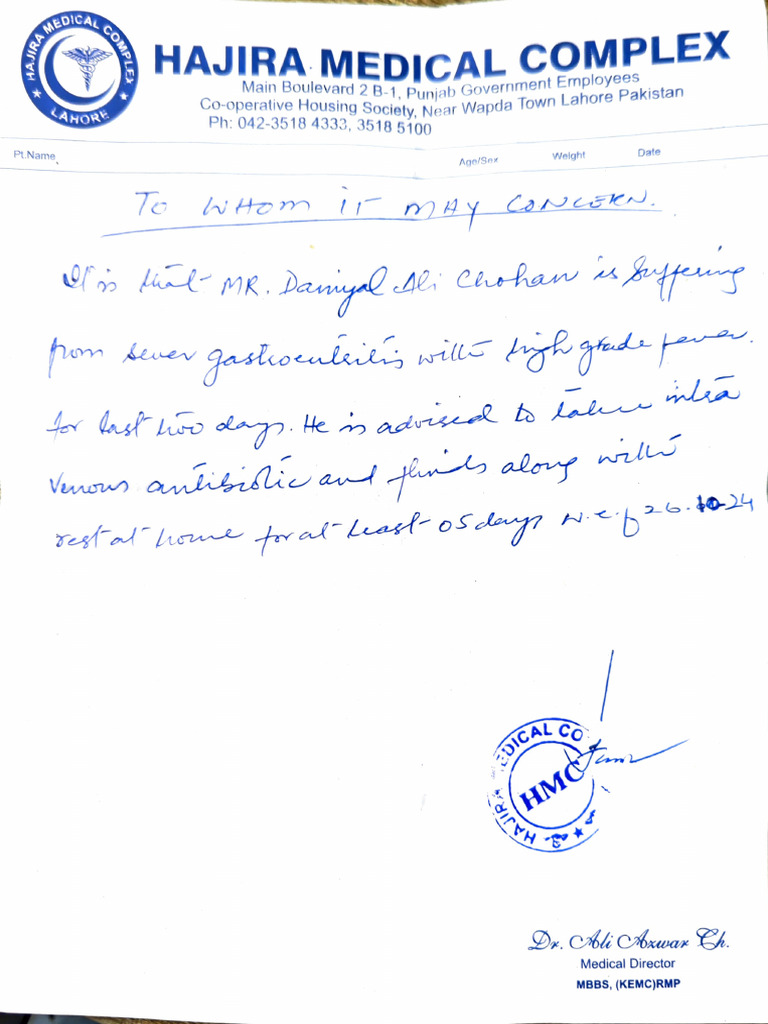 HAJIRA MEDICAL COMPLEX
LAHORE
HAJIRA MEDICAL COMPLEX
Main Boulevard 2 B-1, Punjab Government Employees
Co-operative Housing Society, Near Wapda Town Lahore Pakistan
Ph: 042-3518 4333, 3518 5100
Pt.Name Age/Sex Weight Date
TO WHOM IT MAY CONCERN.
It is that MR. Daniyal Ali Chohan is suffering
from sever gastroenteritis with high grade fever.
for last two days. He is advised to take intra
venous antibiotic and fluids along with
rest at home for at least 05 days w.e.f 26.10-24
HAJIRA MEDICAL CO
HMC
Dr. Ali Azwar Ch.
Medical Director
MBBS, (KEMC)RMP